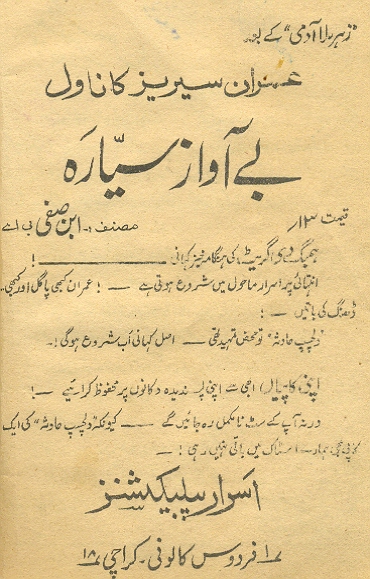 ”زہریلا آدمی“ کے بعد
عمران سیریز کا ناول
بے آواز سیّارہ
قیمت ۱۳/
مصنف :- ابن صفی بی اے
دی گریٹ کی ہنگامہ خیز کہانی ———!
انتہائی پراسرار ماحول میں شروع ہوتی ہے —! عمران کبھی پاگل اور کبھی..
ڈھنگ کی باتیں —!
دلچسپ حادثہ“ تو محض تمہید تھی — اصل کہانی اب شروع ہوگی!۔
اپنی کاپیاں ابھی سے اپنی پسندیدہ دکانوں پر محفوظ کرائیے —!
ورنہ آپ کے سٹ نامکمل رہ جائیں گے — کیونکہ ”دلچسپ حادثہ“ کی ایک
کاپی بھی ہمارے اسٹاک میں باقی نہیں رہی! —
اسرار پبلیکیشنز
۱۷ فردوس کالونی۔ کراچی ۱۸